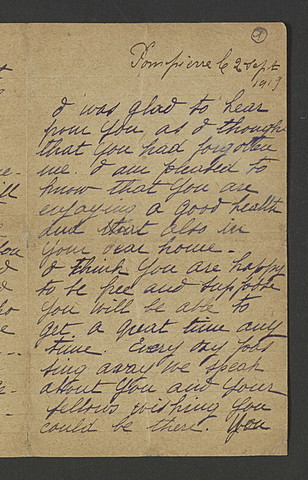 1
Pompierre le 2 Sept
1919
I was glad to hear
from you as I thought
that you had forgotten
me. I am pleased to
know that you are
enjoying a good health
and that also in
your dear home -
I think you are happy
to be free and suppose
you will be able to
get a great time any
time. Every day pas
sing away we speak
about you and your
fellows wishing you
could be there. You